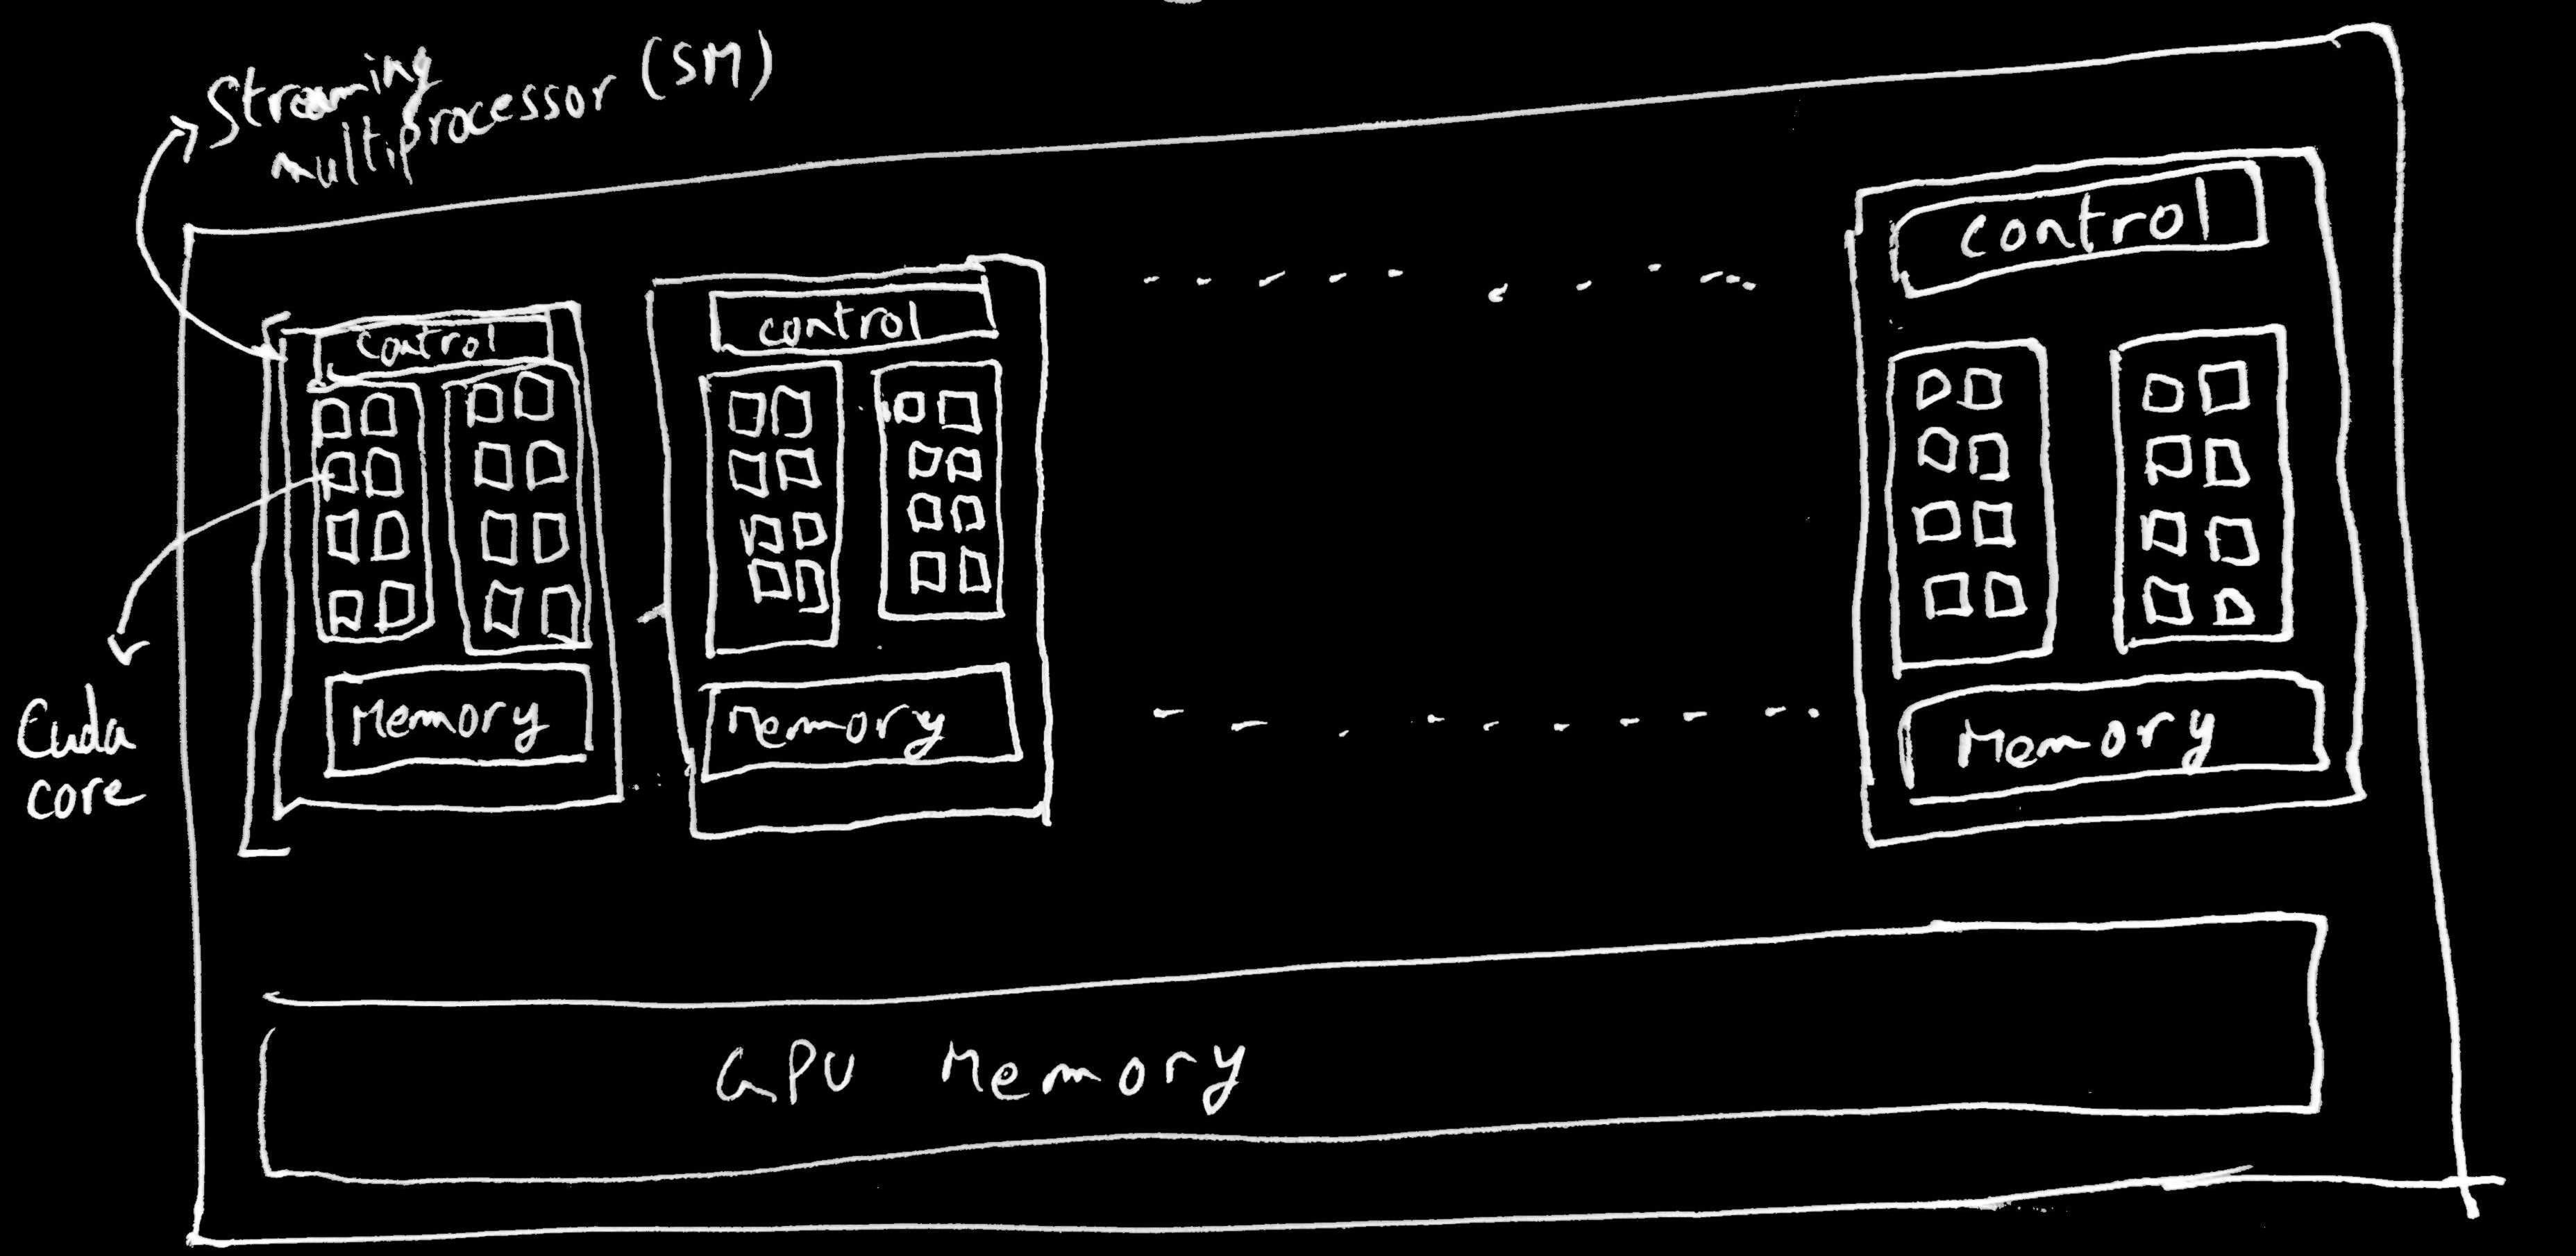 Streaming
multiprocessor (SM)
control
control
control
Memory
Memory
Memory
Cuda
core
GPU Memory